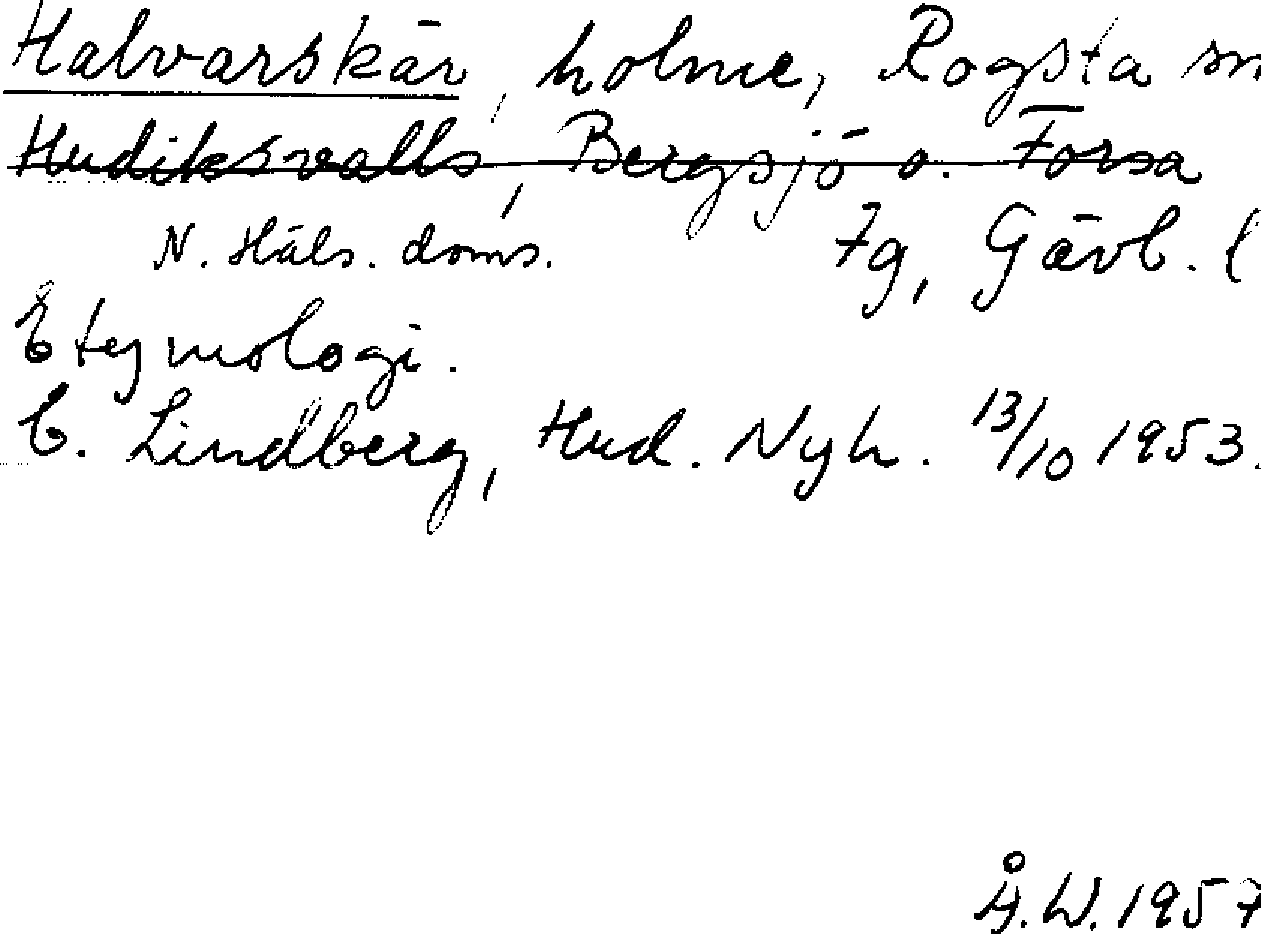 Halvarskär, holme, Rogsta sn
Hudiksvalls, Bergsjö o. Forsa
N. Häls. doms. Fg, Gävl. l
Etymologi.
E. Lindberg, Hud. Nyh. 13/10 1953.
Å.W. 1957